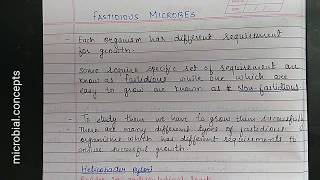 FASTIDIOUS MICROBES
- Each organism has different requirement
for growth.
Some require specific set of requirement are
know as fastidious while one which are
easy to grow are known as Non-fastidious
- To study them we have to grow them successfully
There are many different types of fastidious
organisms which has different requirements to
ensure successful growth.
Helicobacter Pylori
microbial.concepts